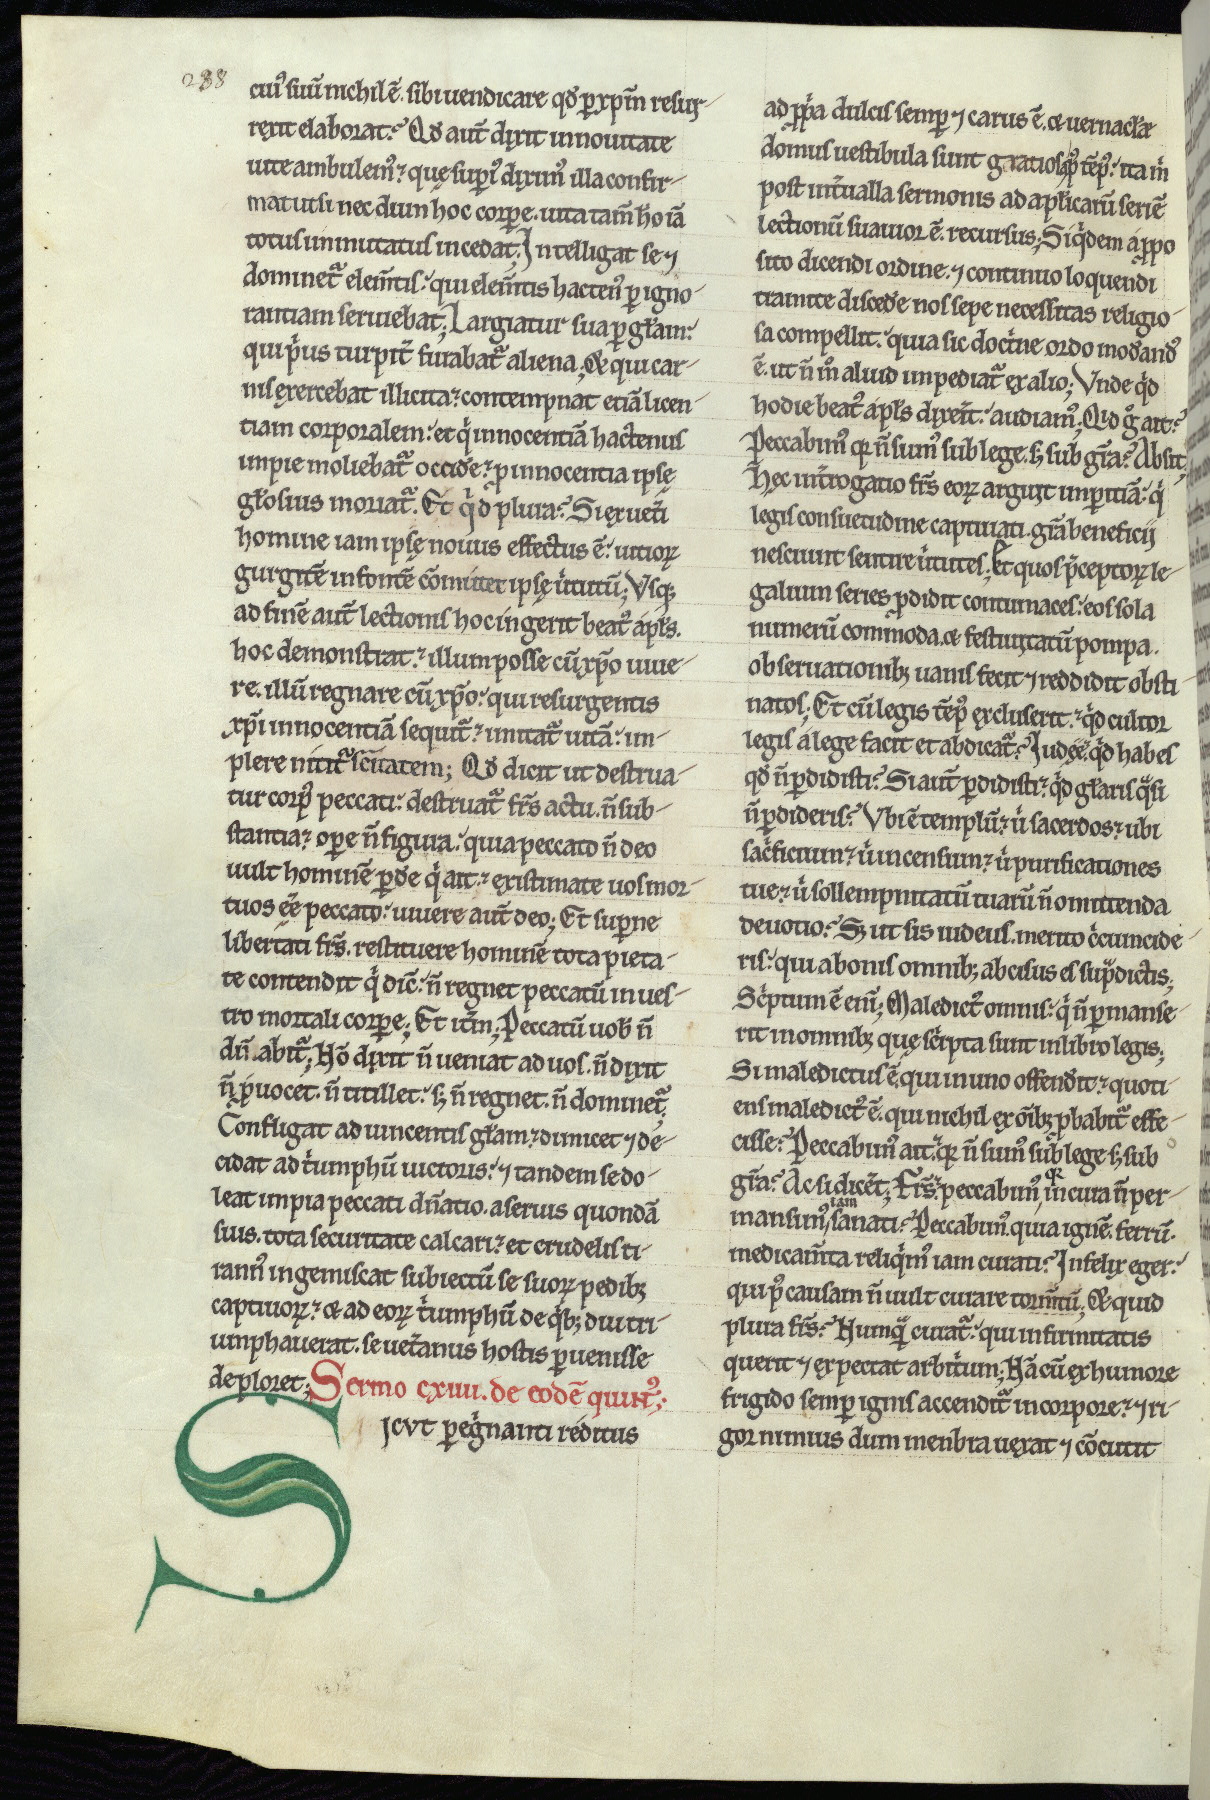 288
cui᷒ suū nichil ē. sibi uendicare qđ p̱ xp̄m resur-
rexit elaborat? Qđ aut̄ dixit in nouitate
uite ambulem᷒? que sup̱i᷒ dixim᷒ illa confir-
mat ut si nec dum hoc corp̱e. uita tam̄ hō iā
totus inmutatus incedat; Intelligat se ⁊
dominet᷑ elem̄tis. qui elem̄tis hacten᷒ p̱ igno-
rantiam seruiebat; Largiatur sua p̱ gl̄am.
qui pͥus turpit̄ furabat᷑ aliena; & qui car-
nis exercebat illicita. contempnat etiā licen-
tiam corporalem. et qͥ innocentiā hactenus
impie moliebat᷑ occid̄e. p̱ innocentia ipsę
gl̄osius moriat᷑. Et qͥd plura? Si ex uet̄i
homine iam ipsę nouus effectus ē. uitioꝝ
gurgitē in fontē cōmutet ipsę uͥtutū; Vsq;
ad finē aut̄ lectionis hoc ingerit beat᷒ apl̄s.
hoc demonstrat. illum posse cū xp̄o uiue-
re. illū regnare cū xp̄o. qui resurgentis
xp̄i innocentiā sequit᷑. imitat᷑ uitā. im-
plere nitit᷑ sc̄itatem; Qđ dicit ut destrua-
tur corp᷒ peccati. destruat᷑ frs̄ actu. n̄ sub-
stantia. op̱e n̄ figura. quia peccato n̄ deo
uult hominē p̱d̄e qͥ ait. existimate uos mor-
tuos eē peccato. uiuere aut̄ deo; Et sup̱ne
libertati frs̄. restituere hominē tota pieta-
te contendit qͥ dic̄. n̄ regnet peccatū in ues-
tro mortali corp̱e; Et it̄m; Peccatū uob̄ n̄
dn̄abit᷑; Nō dixit n̄ ueniat ad uos. n̄ dixit
n̄ p̱uocet. n̄ titillet. sꝫ n̄ regnet. n̄ dominet᷑;
Confligat ad uincentis gl̄am. dimicet ⁊ de-
cidat ad tͥumphū uictoris. ⁊ tandem se do-
leat impia peccati dn̄atio. a seruis quondā
suis. tota securitate calcari. et crudelis ti-
rann᷒ ingemiscat subiectū se suoꝝ pedibꝫ
captiuoꝝ. & ad eoꝝ tͥumphū de qͥbꝫ diu tri-
umphauerat. se uet̄anus hostis p̱uenisse
deploret; Sermo cxiiii. de eodē quint᷒;
SJCVT p̱egͥnanti reditus
ad pp̱a dulcis semp̱ ⁊ carus ē. & uernac̄læ
domus uestibula sunt gratiosa p᷒ tēp᷒. ita in̄
post int̄ualla sermonis ad apl̄icarū seriē
lectionū suauior ē. recursus; Siqͥdem a p̱po
sito dicendi ordine. ⁊ continuo loquendi
tramite disced̄e nos sepe necessitas religio-
sa compellit. quia sic doctͥne ordo mod̄and᷒
ē. ut n̄ m̊ aliud impediat᷑ ex alio; Vnde qͥd
hodie beat᷒ apl̄s dixer̄it. audiam᷒; Qͥd g̊ ait?
Peccabim᷒ qr̄ n̄ sum᷒ sub lege. sꝫ sub gr̄a? Absit;
Hęc int̄rogatio frs̄ eoꝝ arguit imperitiā. qͥ
legis consuetudine captiuati. gr̄a beneficij
nesciunt sentire uͥtutes; Et quos p̄ceptoꝝ le-
galium series p̱didit contumaces. eos sola
numerū commoda. & festiuitatū pompa.
obseruationibꝫ uanis fecit ⁊ reddidit obsti
natos; Et cū legis tēp᷒ excluserit. qͥd cultor
legis a lege facit et abdicat᷑? Iudeę qͥd habes
qđ n̄ p̱didisti? Si aut̄ p̱didisti. qͥd gl̄aris q᷑si
n̄ p̱dideris? Vbi ē templū. uͥ sacerdos. ubi
sac̄ficium. uͥ incensum. uͥ purificationes
tue. uͥ sollempnitatū tuarū n̄ omittenda
deuotio? Sꝫ ut sis iudeus. merito cͥcumcide-
ris. qui a bonis omnibꝫ abcisus es sup̱dictis;
Scͥptum ē enī; Maledict᷒ omnis. qͥ n̄ p̱manse-
rit in omnibꝫ quę scͥpta sunt in libro legis;
Si maledictus ē. qui in uno offend̄it. quoti-
ens maledict᷒ ē. qui nichil ex oībꝫ p̱babit᷑ effe-
cisse? Peccabim᷒ ait. qr̄ n̄ sum᷒ sub lege sꝫ sub
gr̄a? Ac si dic̄et; Frs̄. peccabim᷒ qr̄ in cura n̄ per-
mansim᷒ iam sanati? Peccabim᷒. quia ignē. ferrū.
medicam̄ta reliqͥm᷒ iam curati? Infelix eger.
qui p᷒ causam n̄ uult curare torm̄tū; & quid
plura frs̄? Nunq᷑ curat᷑. qui infirmitatis
querit ⁊ expectat arbitͥum; Nā cū ex humore
frigido semp̱ ignis accendit᷑ in corpore. ⁊ ri-
gor nimius dum membra uexat ⁊ cōcutit